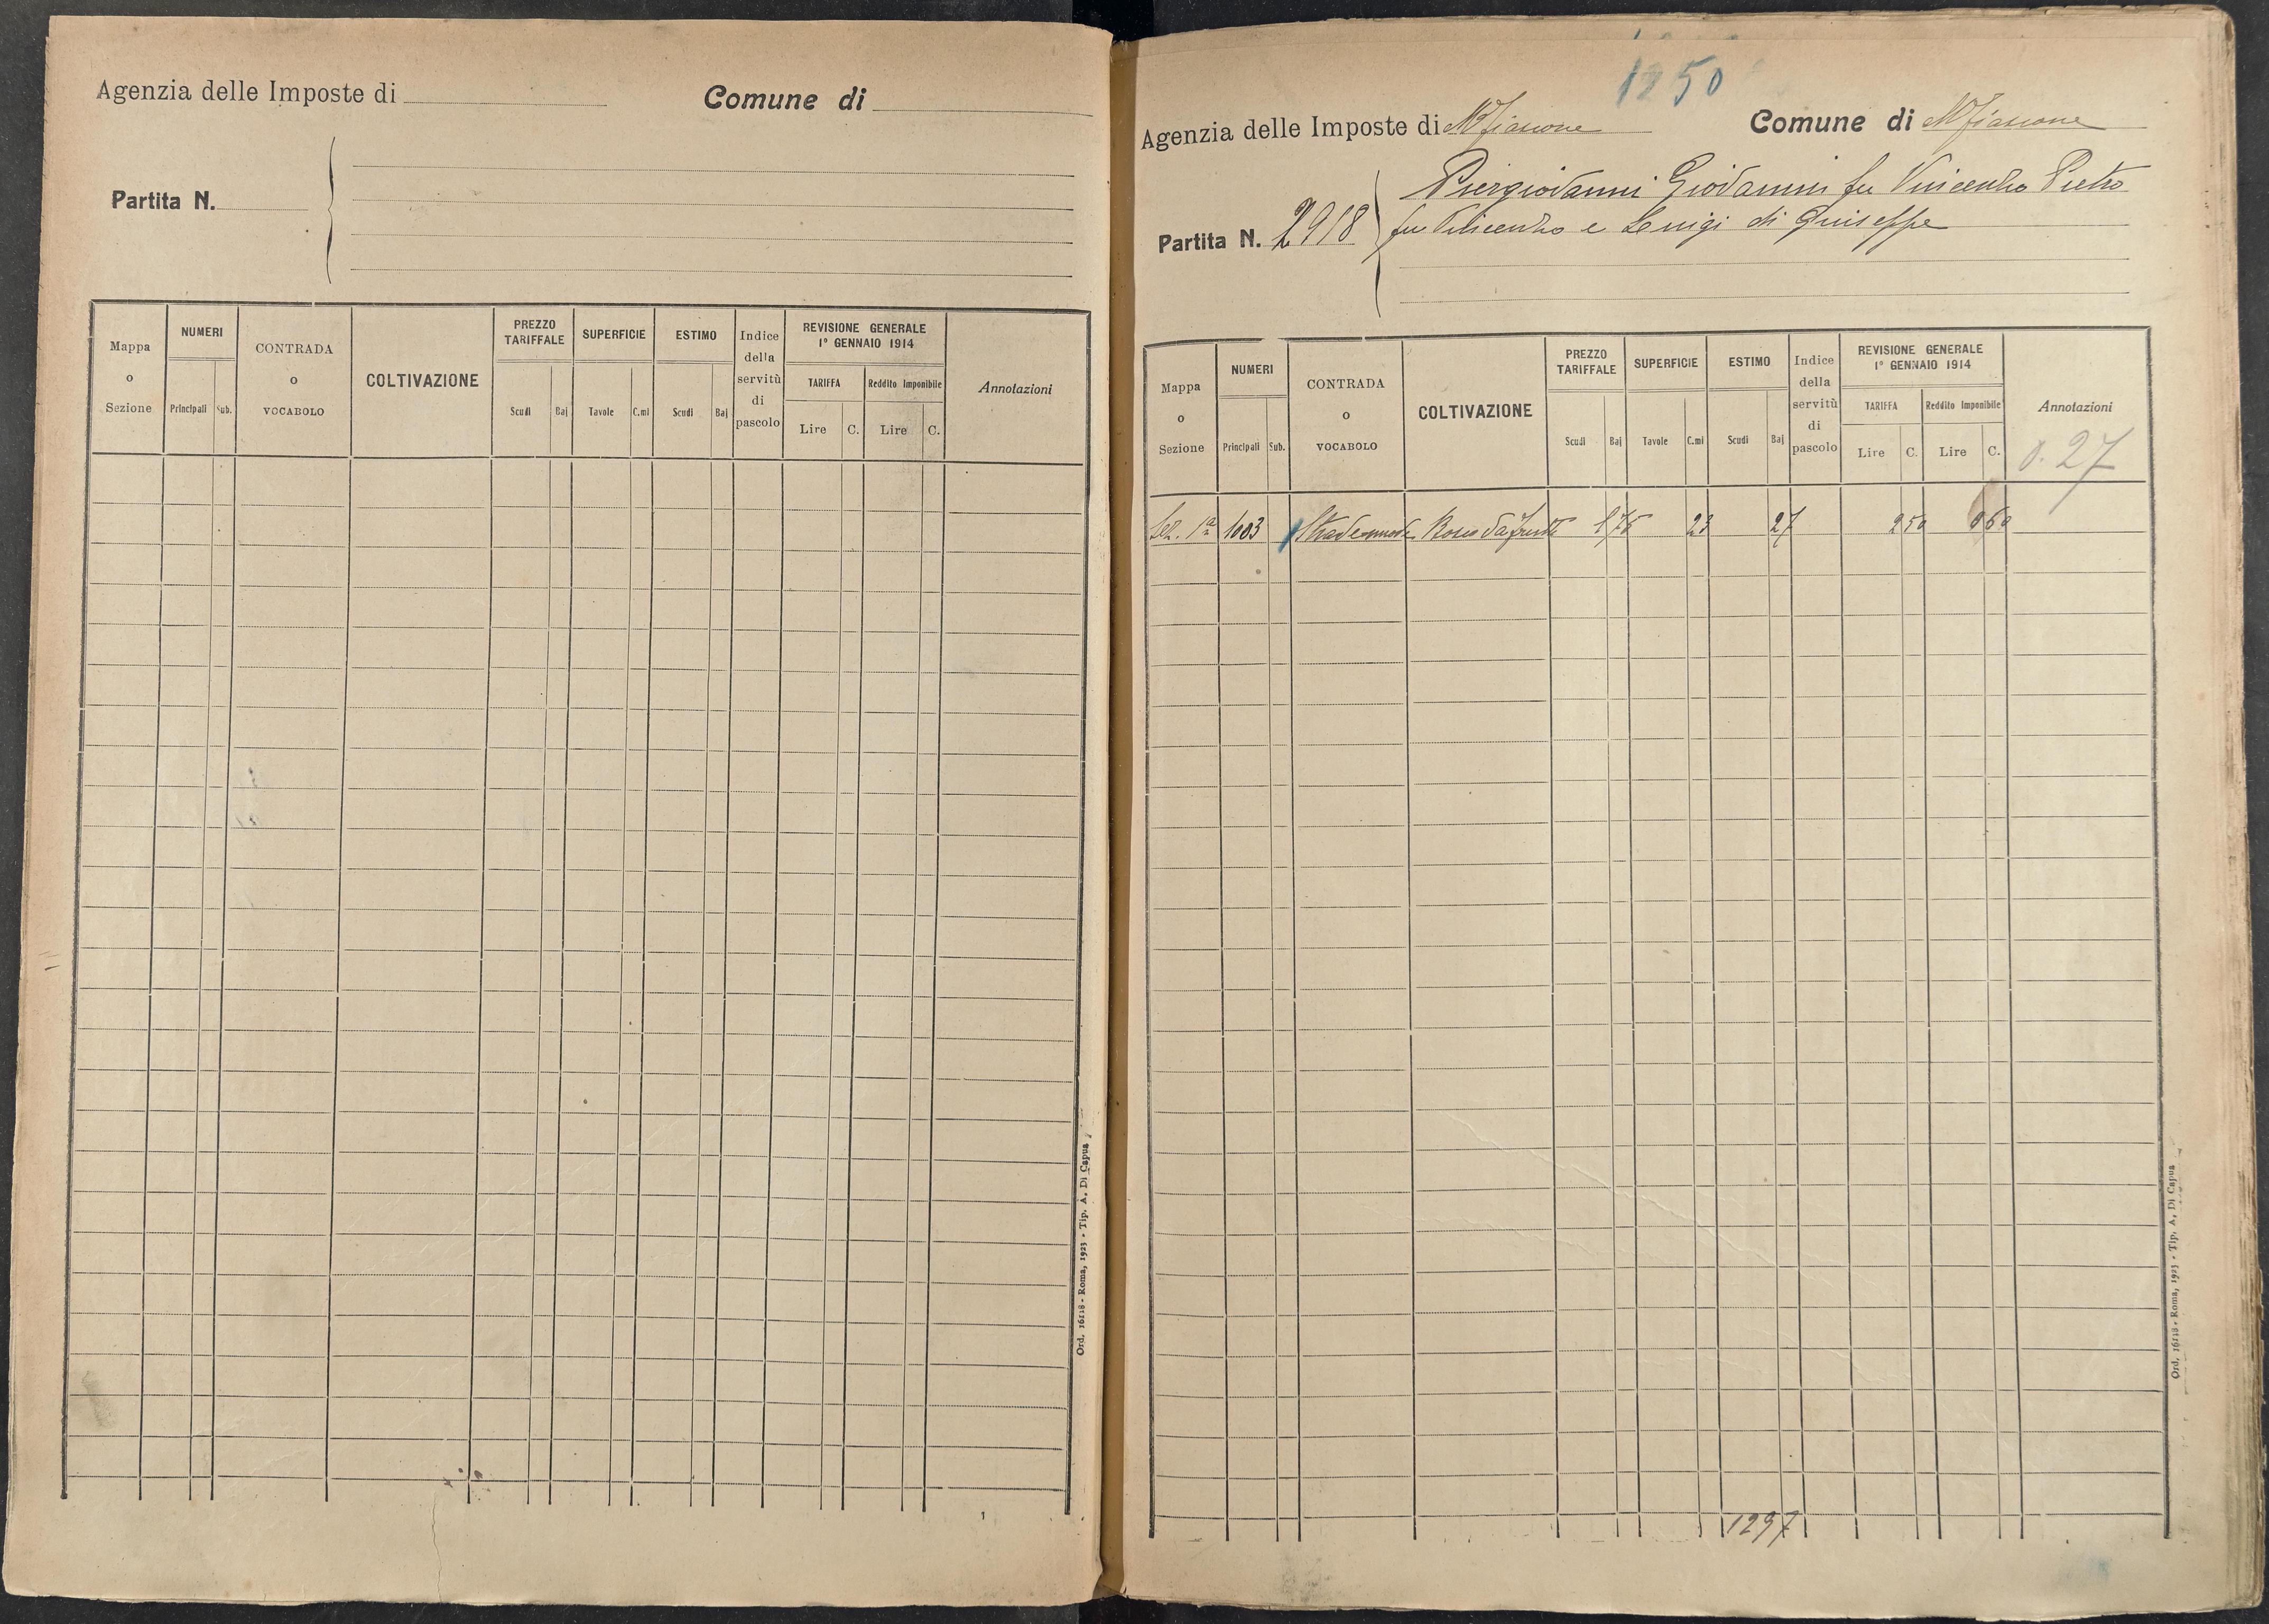 Agenzia delle Imposte di
Comune di
Partita N.
Mappa o Sezione
NUMERI
Principali
Sub.
CONTRADA o VOCABOLO
COLTIVAZIONE
PREZZO TARIFFALE
Scudi
Baj
SUPERFICIE
Tavole
C.mi
ESTIMO
Scudi
Baj
Indice della servitù di pascolo
REVISIONE GENERALE
1° GENNAIO 1914
TARIFFA
Reddito Imponibile
Lire
C.
Lire
C.
Annotazioni
Ord. 16118 - Roma, 1923 - Tip. A. Di Capua
1250
Agenzia delle Imposte di Mfiascone
Comune di Mfiascone
Partita N. 2918
Piergiovanni Giovanni fu Vincenzo Pietro
fu Vincenzo e Luigi di Giuseppe
Mappa o Sezione
NUMERI
Principali
Sub.
CONTRADA o VOCABOLO
COLTIVAZIONE
PREZZO TARIFFALE
Scudi
Baj
SUPERFICIE
Tavole
C.mi
ESTIMO
Scudi
Baj
Indice della servitù di pascolo
REVISIONE GENERALE
1° GENNAIO 1914
TARIFFA
Reddito Imponibile
Lire
C.
Lire
C.
Annotazioni
0.27
Sez. 1ª 1003 da frutto 1 76 23 27 2 50 0 60
1297
Ord. 16118 - Roma, 1923 - Tip. A. Di Capua